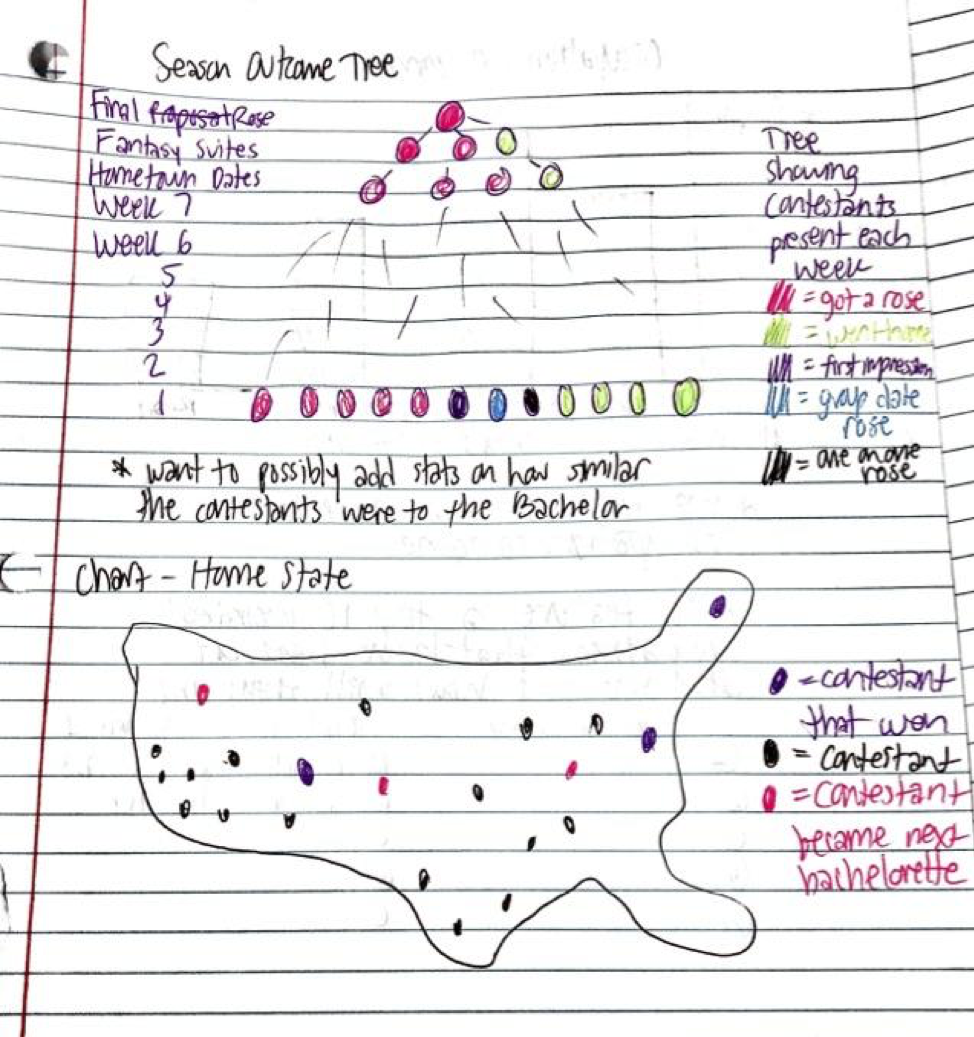 Season Outcome Tree
Final Proposal Rose
Fantasy Suites
Hometown Dates
Week 7
Week 6
5
4
3
2
1
Tree
showing
contestants
present each
week
= got a rose
= went home
= first impression
= group date
rose
= one on one
rose
* want to possibly add stats on how similar
the contestants were to the Bachelor
Chart - Home State
= contestant
that won
= contestant
= contestant
became next
bachelorette